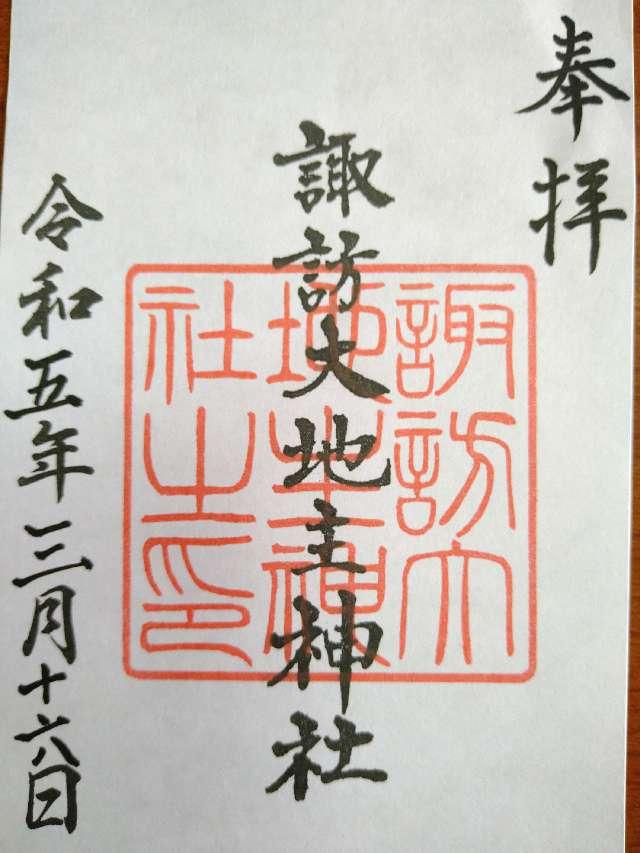 奉拝
諏訪大地主神社
諏訪大
地主神
社之印
令和五年三月十六日